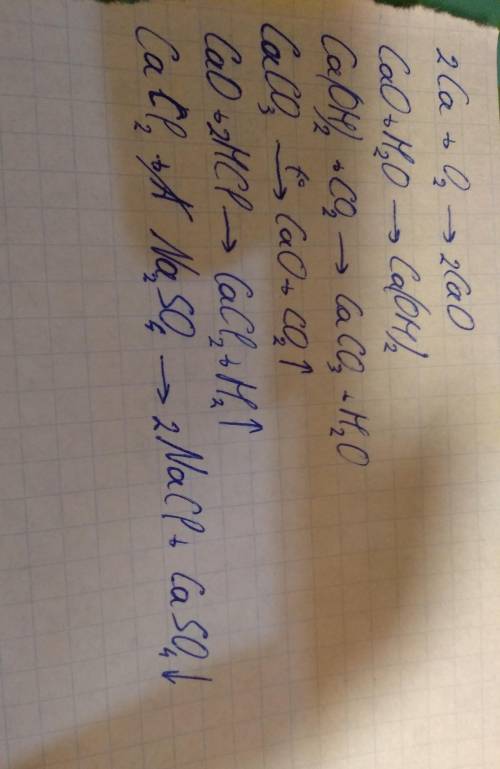 2Ca + O₂ → 2CaO
CaO + H₂O → Ca(OH)₂
Ca(OH)₂ + CO₂ → CaCO₃ + H₂O
CaCO₃ →t° CaO + CO₂↑
CaO + 2HCl → CaCl₂ + H₂↑
CaCl₂ + Na₂SO₄ → 2NaCl + CaSO₄↓